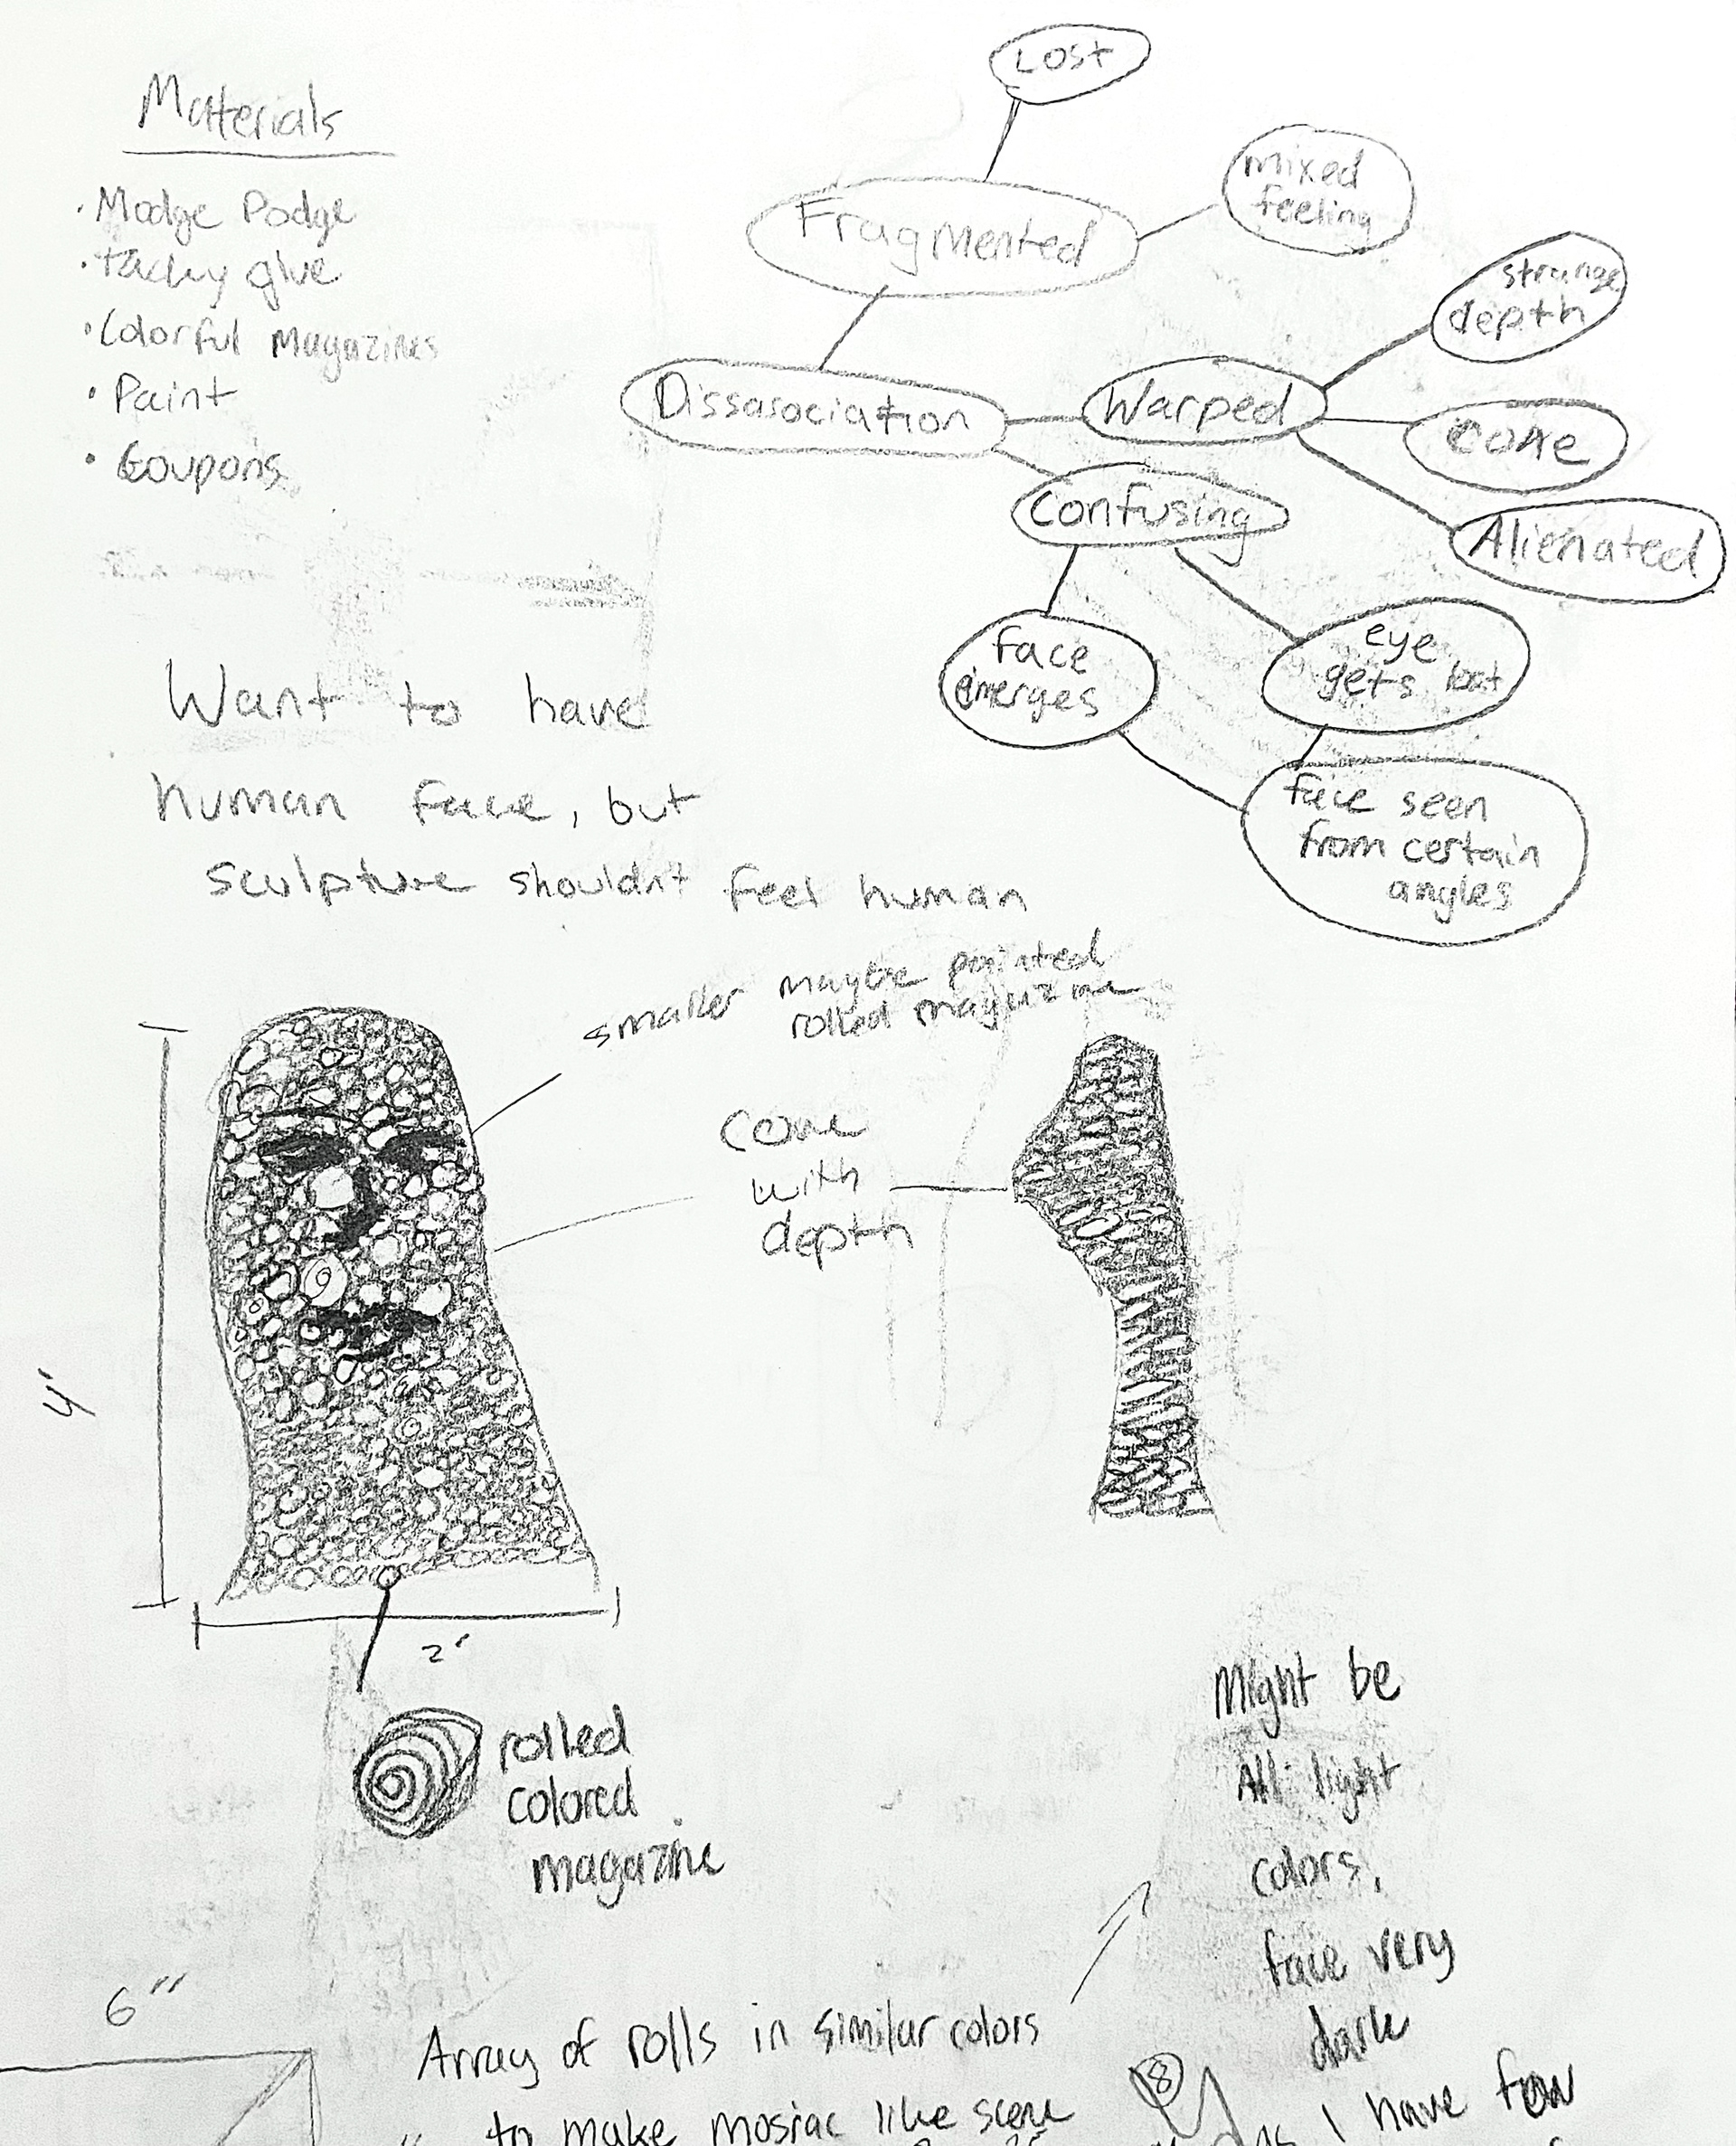 Materials
• Modge Podge
• tacky glue
• Colorful Magazines
• Paint
• Coupons
Lost
Fragmented
mixed
feeling
Dissasociation
Warped
strange
depth
Cone
Alienated
Confusing
face
emerges
eye
gets lost
face seen
from certain
angles
Want to have
human face, but
sculpture shouldn't feel human
smaller maybe painted
rolled magazine
Cone
with
depth
4'
2'
rolled
colored
magazine
Might be
All light
colors,
face very
dark
6"
Array of rolls in similar colors
to make mosiac like scene
8
I have few